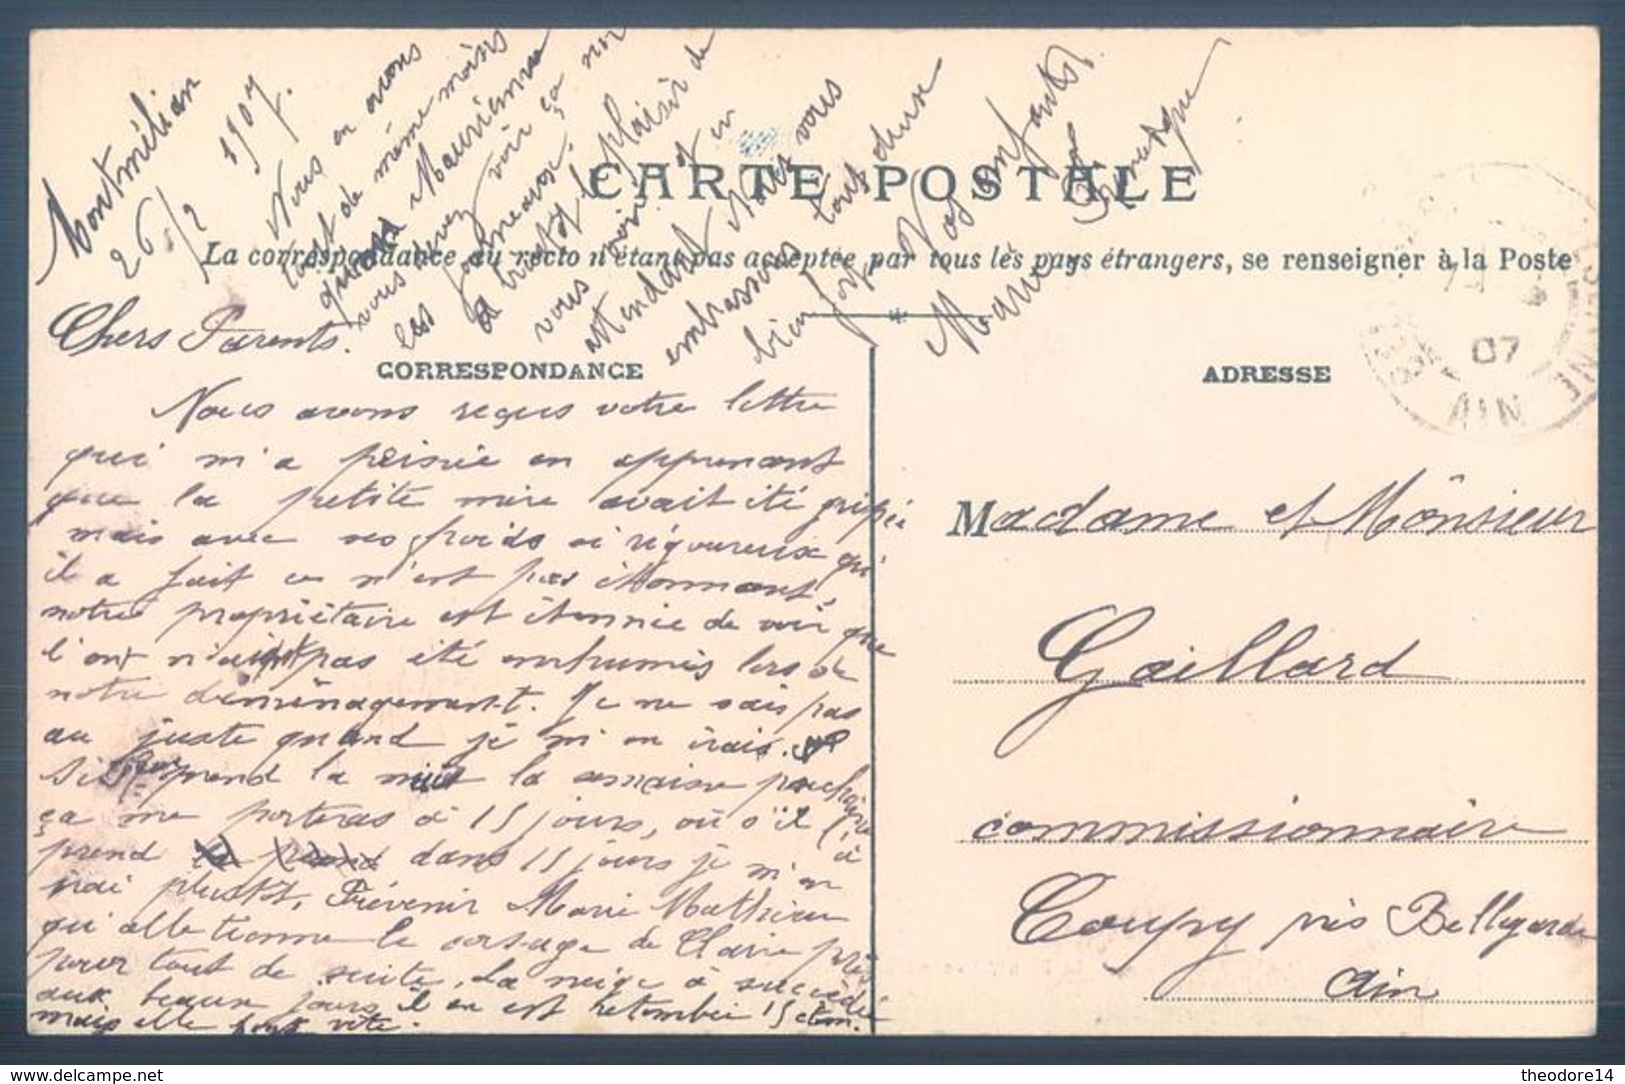 Montmélian
26/2 1907.
Chers Parents.
Nous avons reçus votre lettre
qui m'a peinée en apprenant
que la petite mère avait été grippée
mais avec ses froids si rigoureux qu'
il a fait ce n'est pas étonnant,
notre propriétaire est étonnée de voir que
l'ont n'ait pas été enrhumés lors de
notre déménagement. Je ne sais pas
au juste quand je m'en irais.
Si prend la nuit la semaine prochaine
ça me porteras à 15 jours, où s'il
prend dans 15 jours je m'en
irai plustôt, Prévenir Marie Mathieu
qu'elle tienne le corsage de Clavie près
pour tout de suite. La neige à succédée
aux beaux jours il en est retombée 15 ctm.
mais elle font vite.
Nous en avons
tout de même moins
quand Maurienne
vous devez voir ça
les journeaux.
A bientôt le plaisir de
vous voir et en
attendant Nous vous
embrassons tous deux
bien fort Vos enfants
Marie
CARTE POSTALE
La correspondance au recto n'étant pas acceptée par tous les pays étrangers, se renseigner à la Poste
CORRESPONDANCE
ADRESSE
07
AIN
Madame et Monsieur
Gaillard
commissionnaire
Coupy près Bellegarde
Ain
https://www.delcampe.net
theodore14